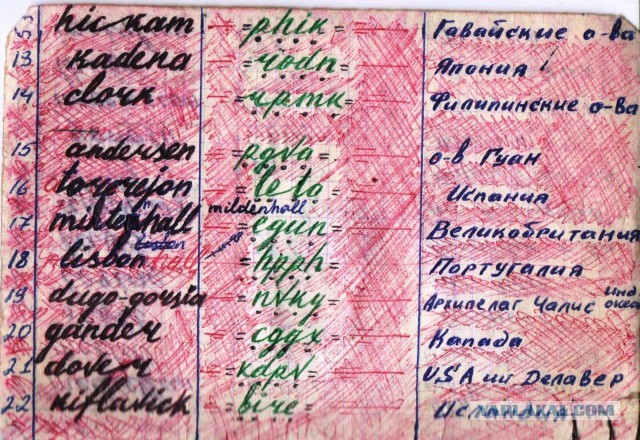 hickam = phik = — Гавайские о-ва
13 kadena = rodn = — Япония
14 clark = rpmk = — Филипинские о-ва
15 andersen = pgva = — о-в Гуан
16 torrejon = leto = — Испания
17 miltonhall mildenhall = egun = — Великобритания
18 lisbon = — Португалия
19 diego-garsia = nvky = — Архипелаг Чалис Инд. океа
20 gander = cggx = — Канада
21 dover = kdpv = — USA шт Делавер
22 kiflavick = bire =
YAPLAKAL.COM